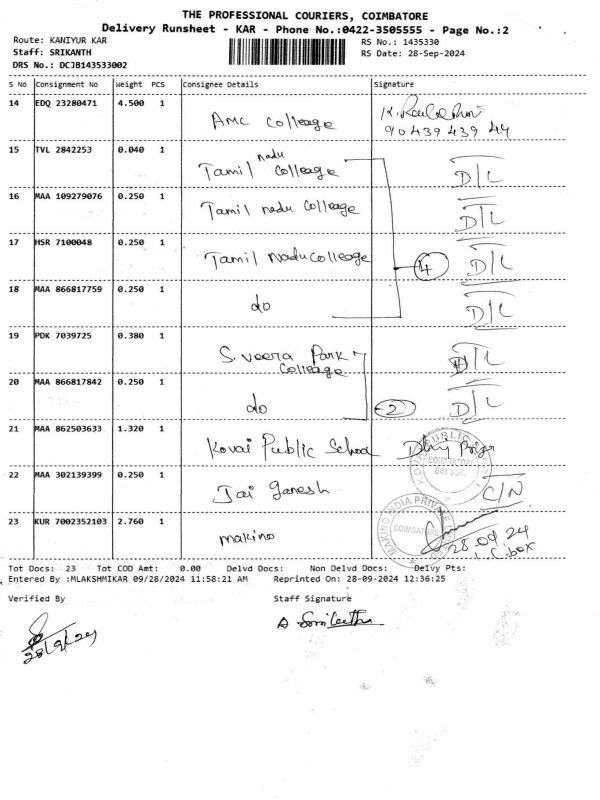 THE PROFESSIONAL COURIERS, COIMBATORE
Delivery Runsheet - KAR - Phone No.:0422-3505555 - Page No.:2
Route: KANIYUR KAR
RS No.: 1435330
Staff: SRIKANTH
RS Date: 28-Sep-2024
DRS No.: DCJB143533002
S No Consignment No Weight PCS Consignee Details Signature
14 EDQ 23280471 4.500 1 AMC Colleage
90439 439 44
15 TVL 2842253 0.040 1 Tamil nadu Colleage D/L
16 MAA 109279076 0.250 1 Tamil nadu Colleage D/L
17 HSR 7100048 0.250 1 Tamil Nadu Colleage 4 D/L
18 MAA 866817759 0.250 1 do D/L
19 PDK 7039725 0.380 1 S. veera Park Colleage D/L
20 MAA 866817842 0.250 1 do 2 D/L
21 MAA 862503633 1.320 1 Kovai Public School
PUBLIC
COIMBATORE
22 MAA 302139399 0.250 1 Jai Ganesh C/N
23 KUR 7002352103 2.760 1 makino
MAKINO INDIA PRIVATE
COIMBATORE
28.09.24
Tot Docs: 23 Tot COD Amt: 0.00 Delvd Docs: Non Delvd Docs: Delvy Pts:
Entered By :MLAKSHMIKAR 09/28/2024 11:58:21 AM Reprinted On: 28-09-2024 12:36:25
Verified By Staff Signature
28/9/24